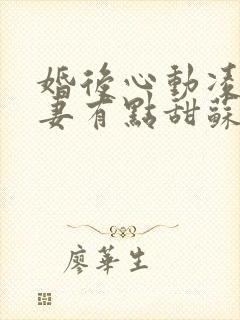 婚後心動凌
妻有點甜蘇
廖華生